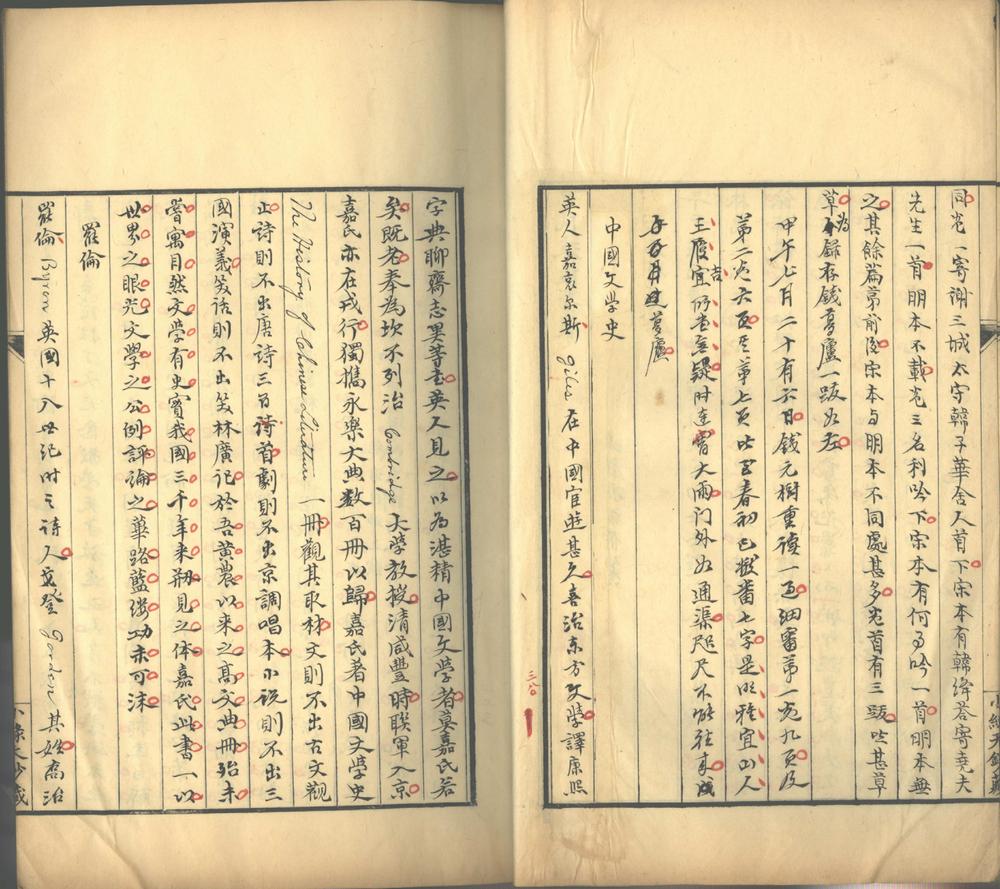 同卷一寄謝三城太守韓子華舍人首下宋本有韓絳荅寄堯夫
先生一首明本不載卷三名利吟下宋本有何事吟一首明本無
之其餘篇第前後宋本与明本不同處甚多卷首有三跋皆甚草
草為錄存錢夢廬一跋如左
甲午七月二十有六日錢元樹重讀一過細審第一卷九頁及
第二卷六頁第七頁七字是明雅宜山人
王履吉宜所書無疑時達宵大雨门外如通渠咫尺不能往來
夢廬
中國文學史
英人嘉爾斯 Giles 在中國宦遊甚久喜治東方文學譯康熙
字典聊齋志異等書英人見之以為湛精中國文學者莫嘉氏若
矣既老奉為坎不列治 Cambridge 大學教授清咸豐時聯軍入京
嘉氏亦在戎行獨攜永樂大典数百冊以歸嘉氏著中國文學史
The History of Chinese Literature 一冊觀其取材文則不出古文觀
止詩則不出唐詩三百首劇則不出京調唱本小說則不出三
國演義笑話則不出笑林廣記於吾黃農以來之高文典冊殆未
嘗寓目然文學有史實我國三千年來剏見之体嘉氏此書一以
世界之眼光文學之公例評論之蓽路藍縷功未可沫
羅倫
羅倫 Byron 英國十八世纪时之诗人 Gorden 其姓喬治